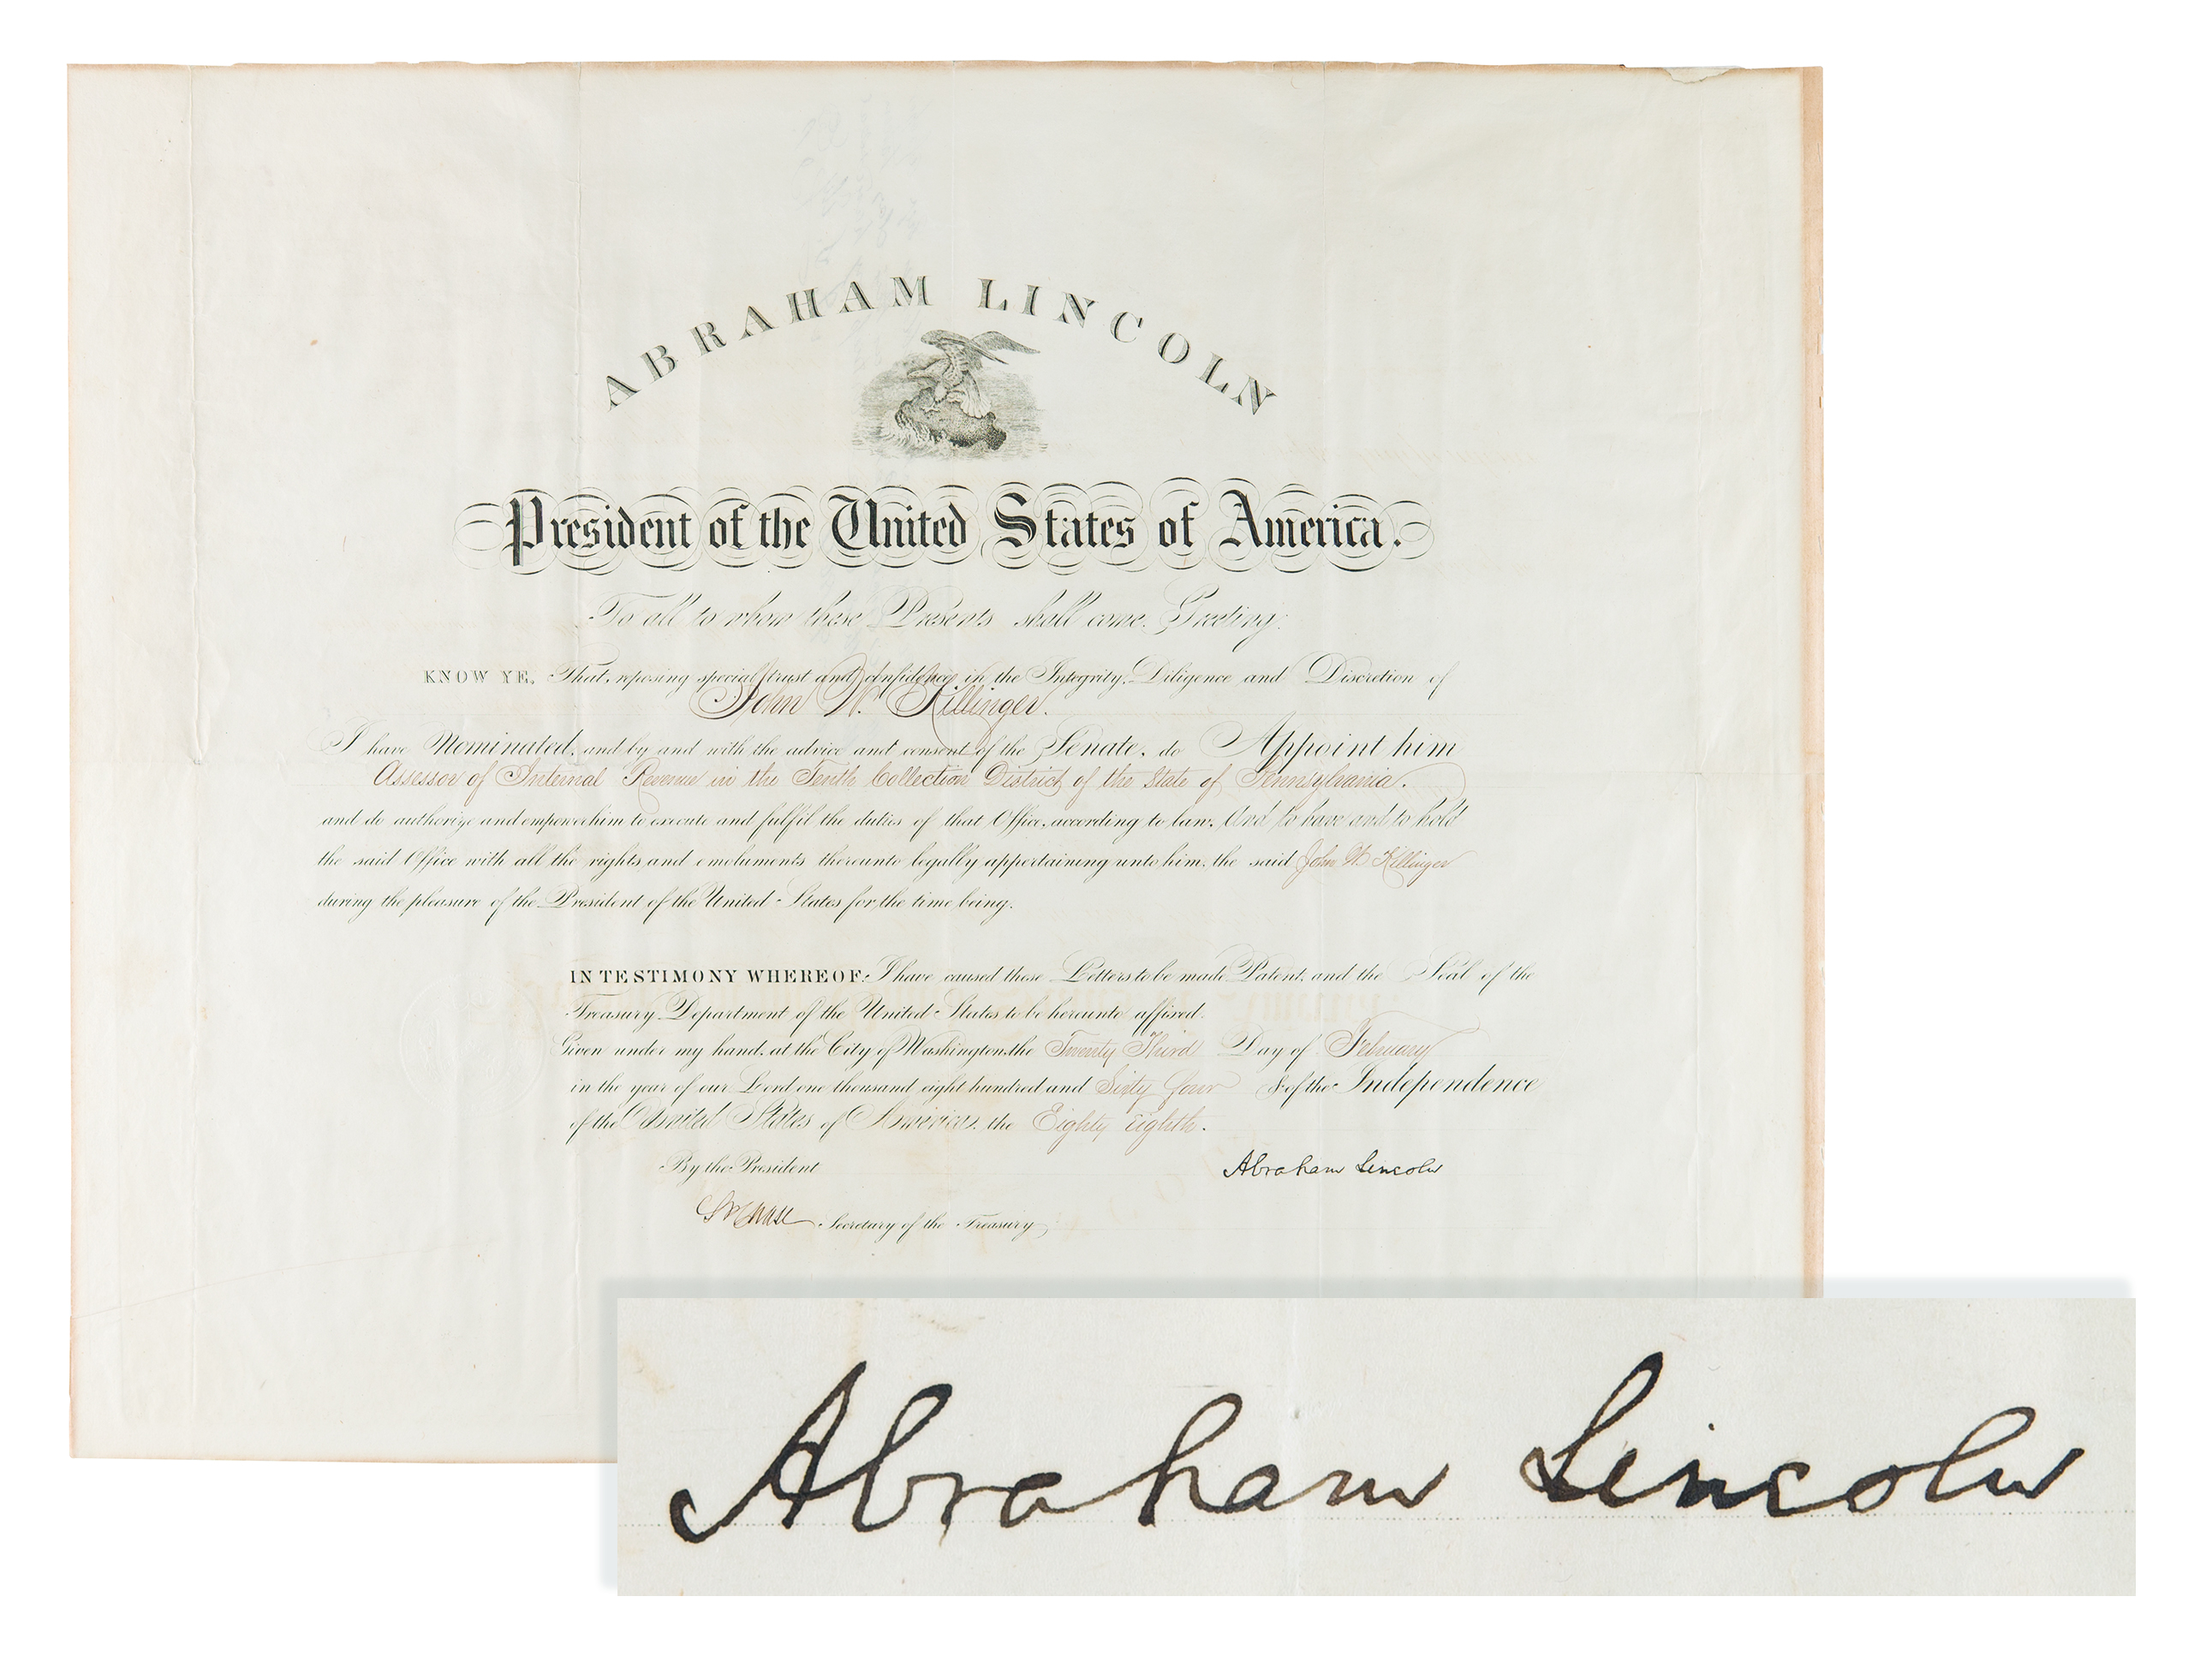 ABRAHAM LINCOLN
President of the United States of America.
To all to whom these Presents shall come. Greeting:
KNOW YE, That, reposing special trust and confidence in the Integrity, Diligence and Discretion of
John W. Killinger.
I have Nominated, and by and with the advice and consent of the Senate, do Appoint him
Assessor of Internal Revenue in the Tenth Collection District of the State of Pennsylvania.
and do authorize and empower him to execute and fulfil the duties of that Office, according to law. And to have and to hold
the said Office with all the rights and emoluments thereunto legally appertaining unto him, the said John W. Killinger
during the pleasure of the President of the United States for the time being.
IN TESTIMONY WHEREOF, I have caused these Letters to be made Patent, and the Seal of the
Treasury Department of the United States to be hereunto affixed.
Given under my hand, at the City of Washington, the Twenty Third Day of February
in the year of our Lord one thousand eight hundred and Sixty four & of the Independence
of the United States of America, the Eighty Eighth.
By the President Abraham Lincoln
S P Chase Secretary of the Treasury
Abraham Lincoln